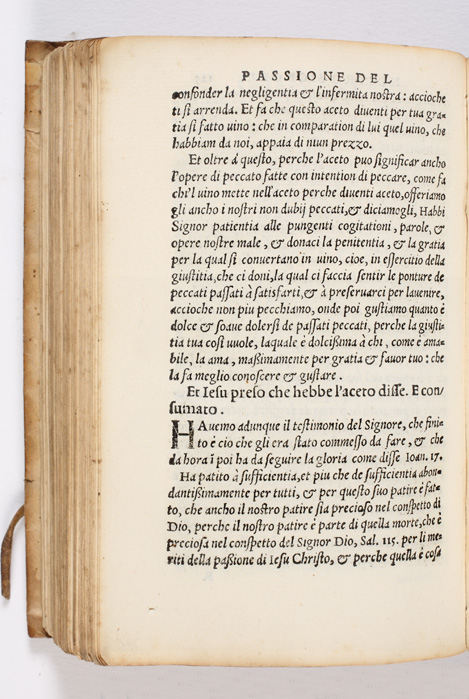 PASSIONE DEL
confonder la negligentia & l'infermita nostra: accioche
ti si arrenda. Et fa che questo aceto diuenti per tua gra-
tia si fatto uino: che in comparation di lui quel uino, che
habbiam da noi, appaia di niun prezzo.
Et oltre à questo, perche l'aceto puo significar ancho
l'opere di peccato fatte con intention di peccare, come fa
chi'l uino mette nell'aceto perche diuenti aceto, offeriamo
gli ancho i nostri non dubij peccati, & diciamogli, Habbi
Signor patientia alle pungenti cogitationi, parole, &
opere nostre male, & donaci la penitentia, & la gratia
per la qual si conuertano in uino, cioe, in essercitio della
giustitia, che ci doni, la qual ci faccia sentir le ponture de
peccati passati à satisfarti, & à preseruarci per lauenire,
accioche non piu pecchiamo, onde poi gustiamo quanto è
dolce & soaue dolersi de passati peccati, perche la giusti-
tia tua cosi uuole, laquale è dolcissima à chi, come è ama-
bile, la ama, massimamente per gratia & fauor tuo: che
la fa meglio conoscere & gustare.
Et Iesu preso che hebbe l'aceto disse. E con-
sumato.
HAuemo adunque il testimonio del Signore, che fini-
to è cio che gli era stato commesso da fare, & che
da hora ī poi ha da seguire la gloria come disse Ioan. 17.
Ha patito à sufficientia, et piu che de sufficientia abon-
dantissimamente per tutti, & per questo suo patire è fat-
to, che ancho il nostro patire sia precioso nel conspetto di
Dio, perche il nostro patire è parte di quella morte, che è
preciosa nel conspetto del Signor Dio, Sal. 115. per li me-
riti della passione di Iesu Christo, & perche quella è cosa